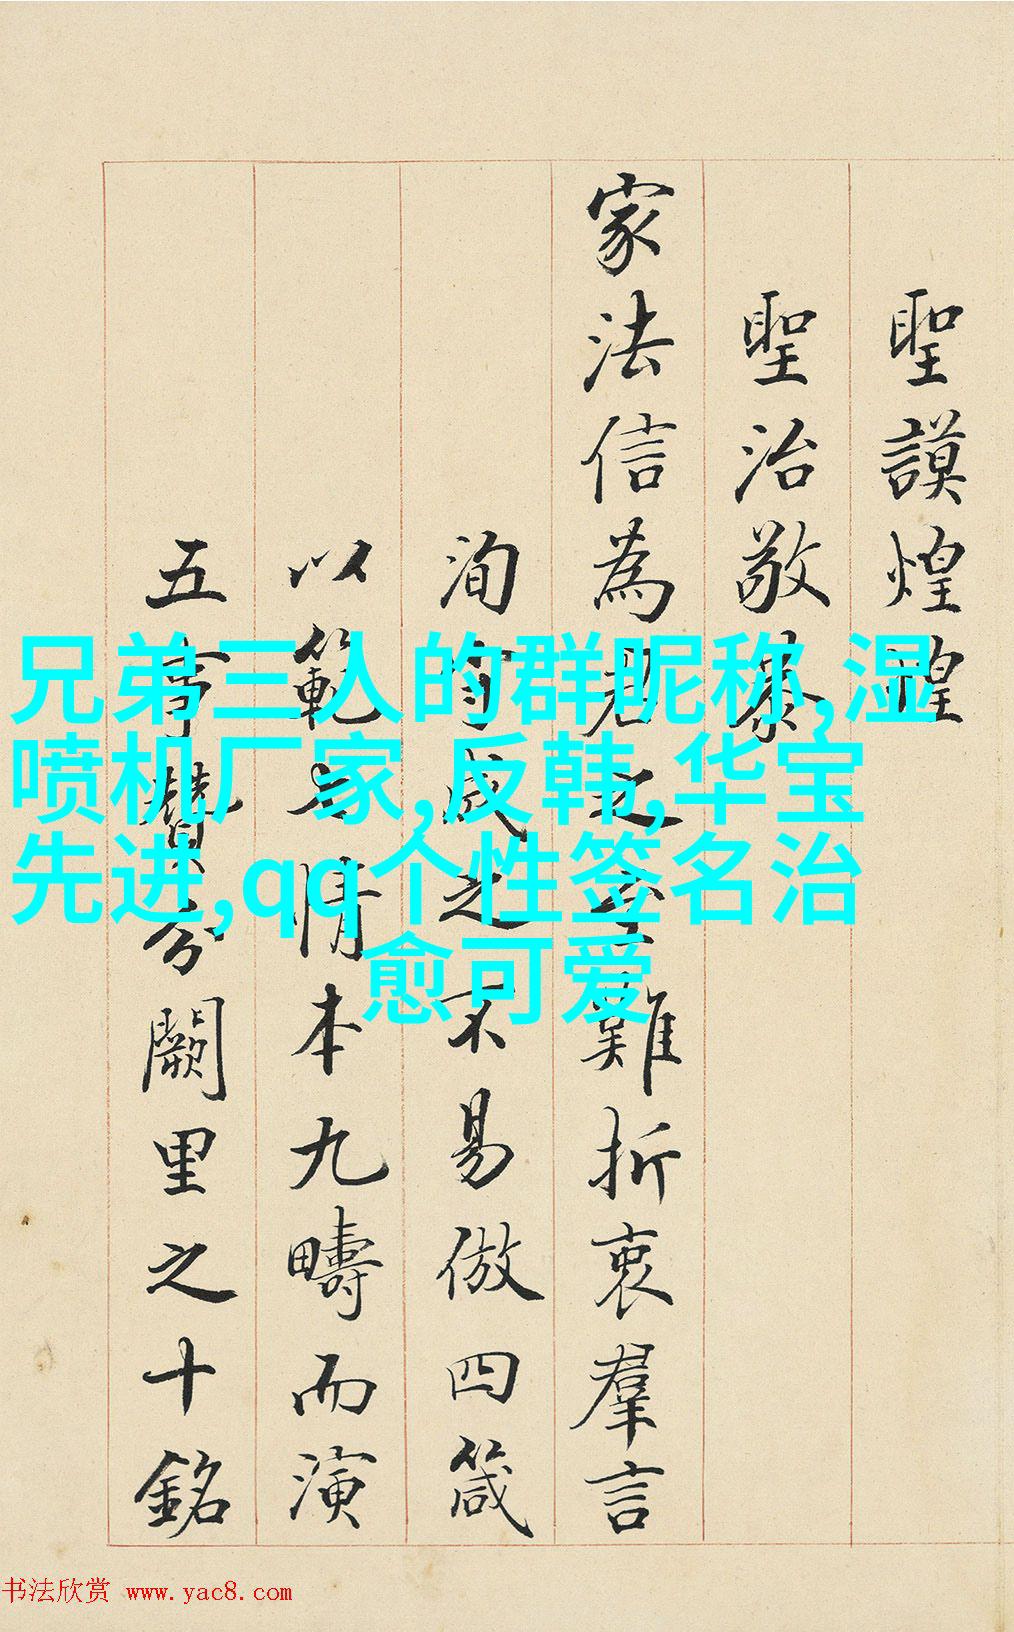 聖謨煌煌
聖治敬
家法信為君之至難折衷羣言
洵守成之不易倣四箴
以範七情本九疇而演
五事贊分闕里之十銘
兄弟三人的群昵称,湿
喷机厂家,反韩,华宝
先进,qq个性签名治
愈可爱
书法欣赏 www.yac8.com